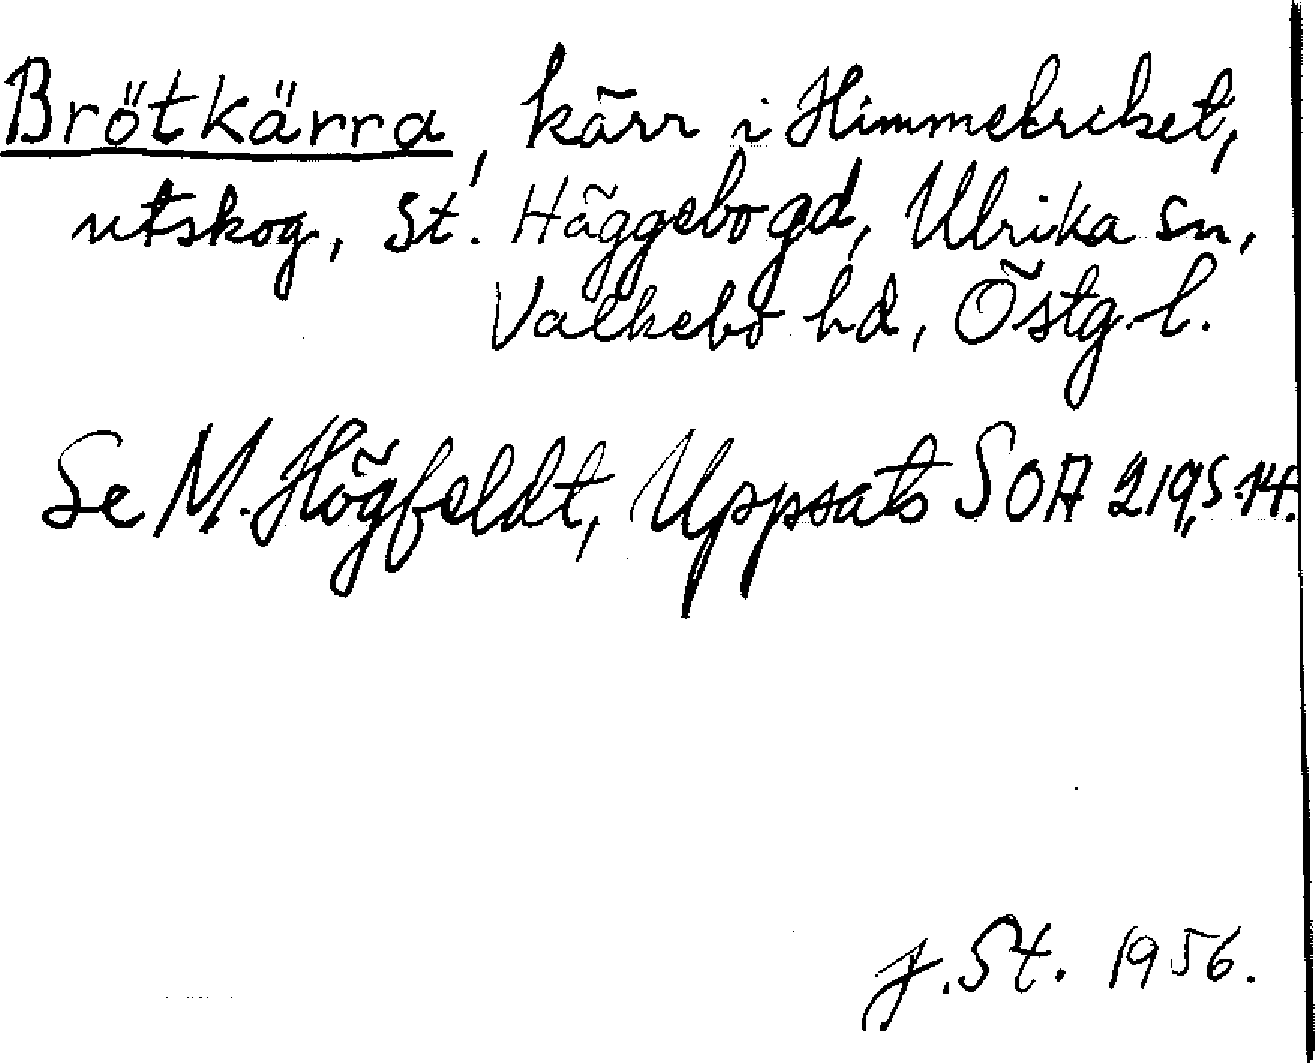 Brötkärra, kärr i Himmelriket,
utskog, St. Häggebo gd, Ulrika sn,
Valkebo hd, Östg. l.
Se M. Högfeldt, Uppsats SOA 219, s. 14.
J. St. 1956.